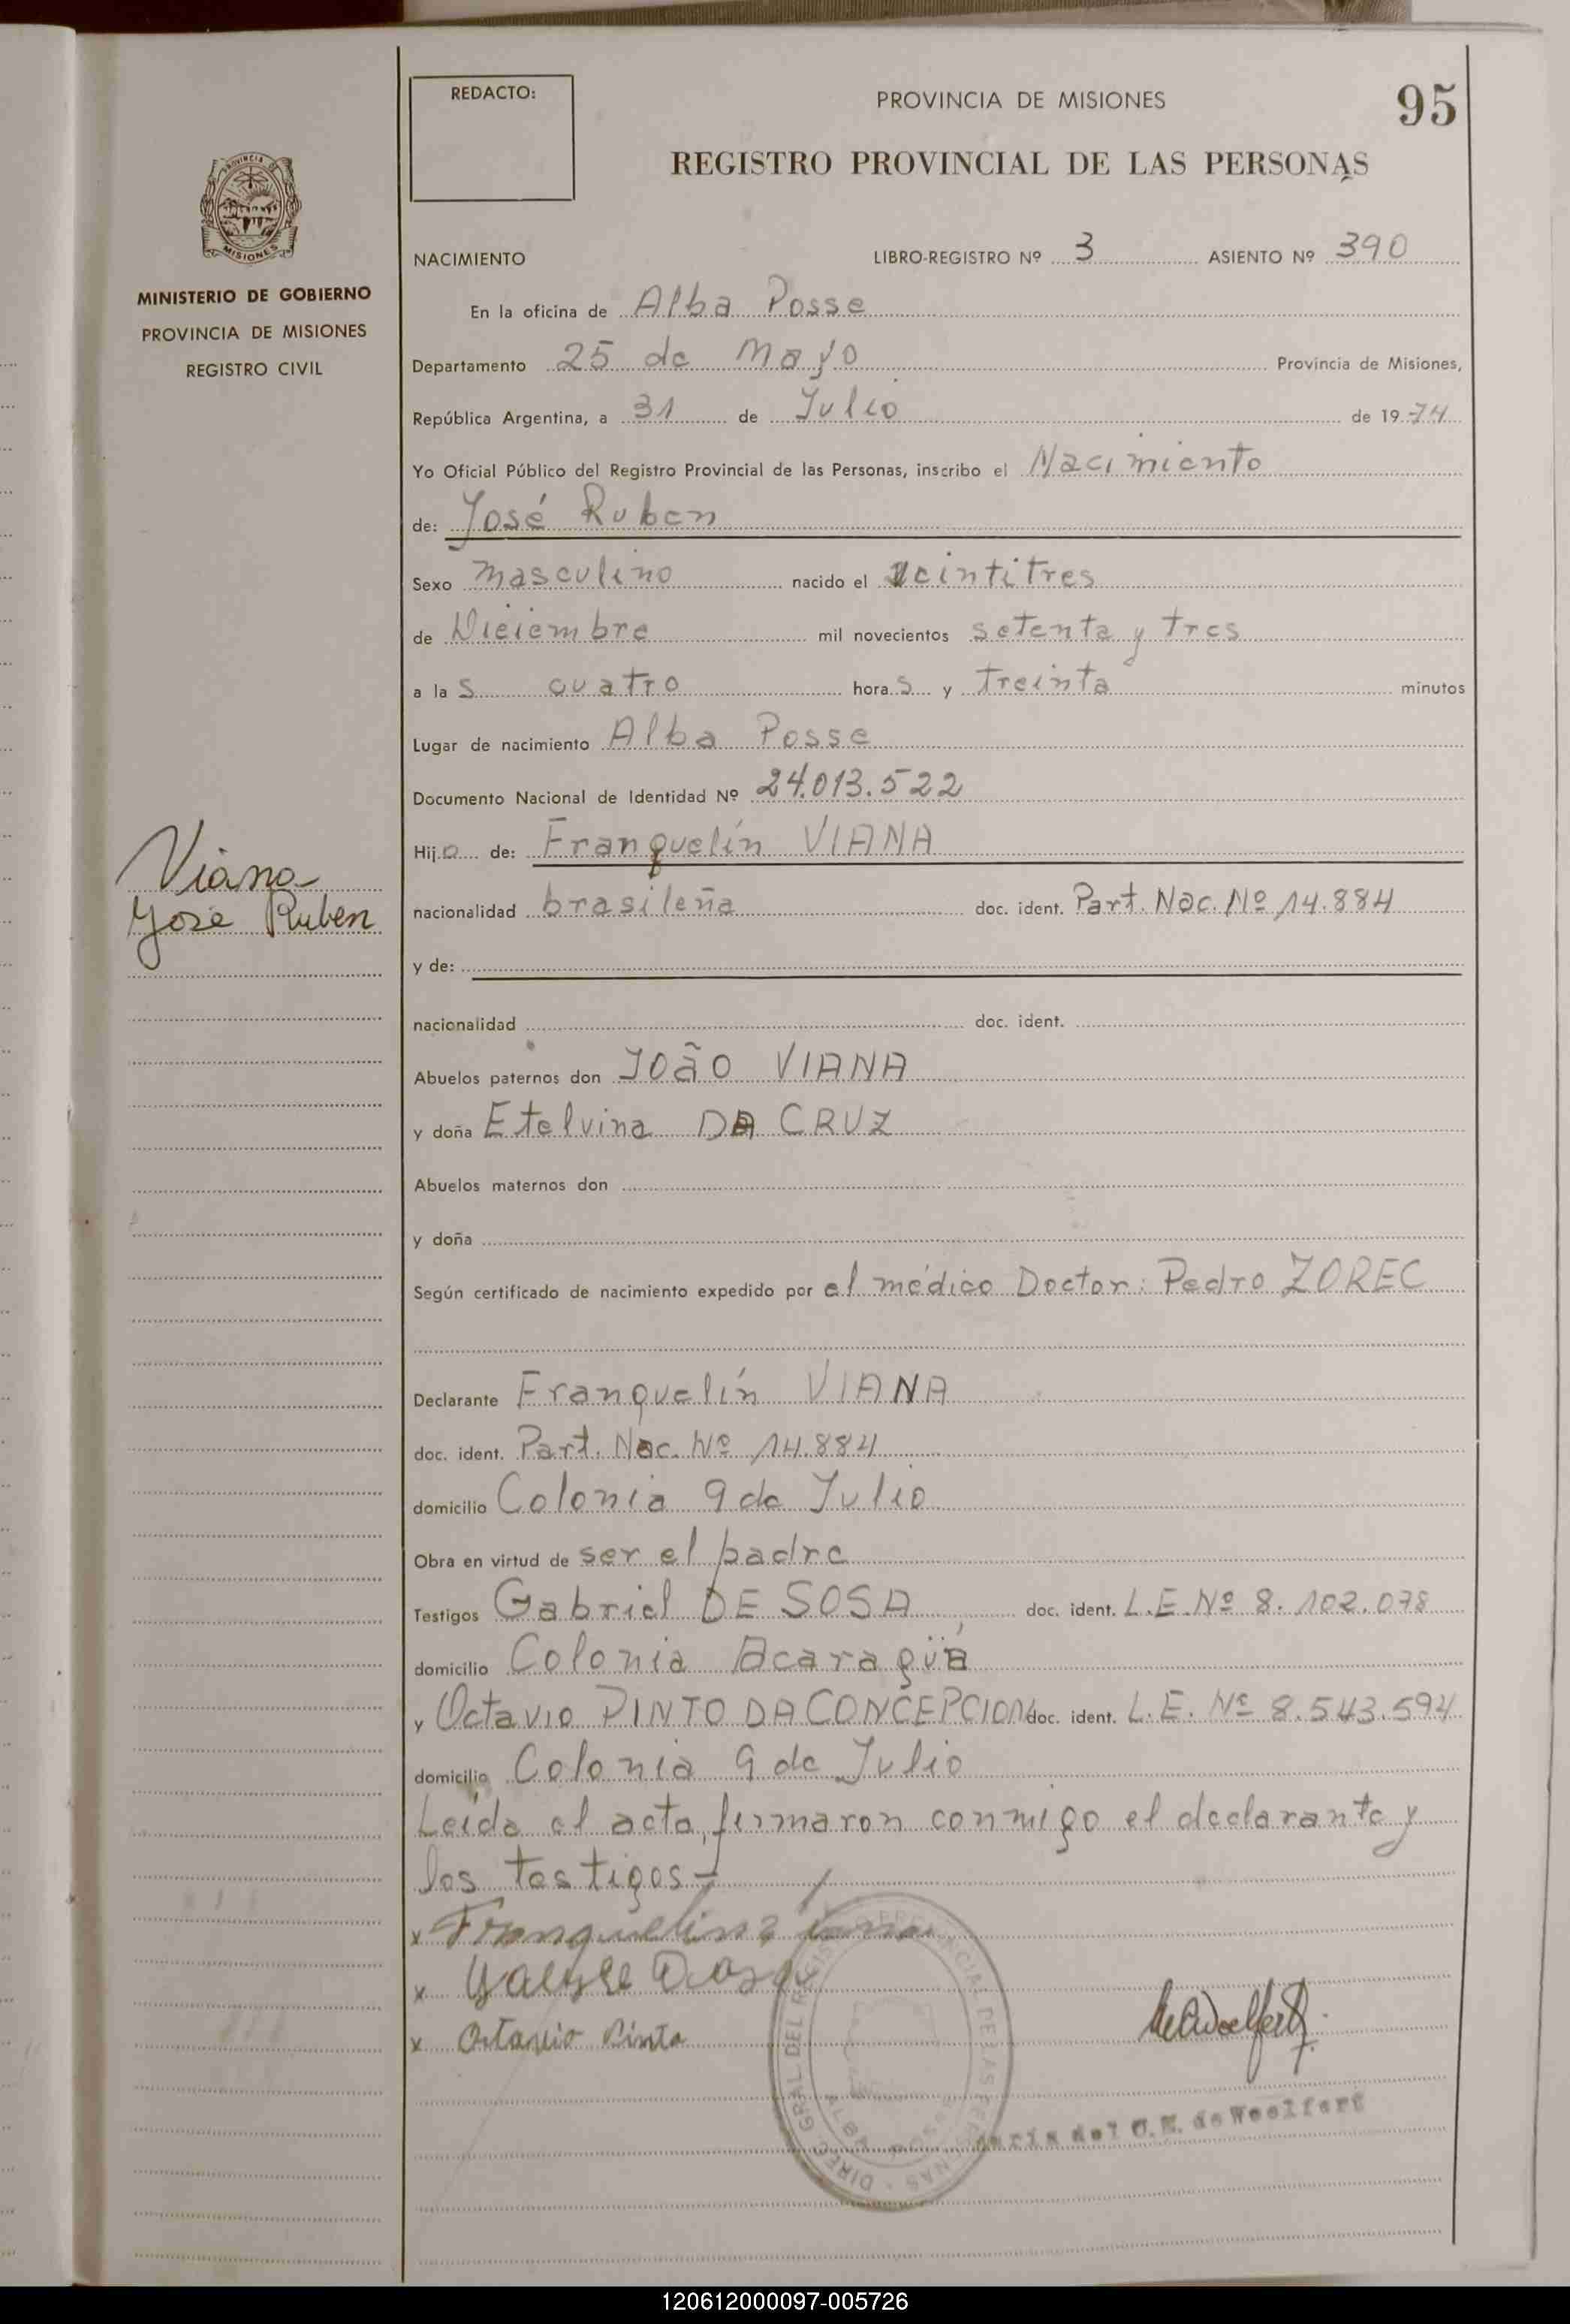 REDACTO:
PROVINCIA DE MISIONES
95
REGISTRO PROVINCIAL DE LAS PERSONAS
PROVINCIA DE
MISIONES
MINISTERIO DE GOBIERNO
PROVINCIA DE MISIONES
REGISTRO CIVIL
NACIMIENTO LIBRO-REGISTRO Nº 3 ASIENTO Nº 390
En la oficina de Alba Posse
Departamento 25 de Mayo Provincia de Misiones,
República Argentina, a 31 de Julio de 19 74
Yo Oficial Público del Registro Provincial de las Personas, inscribo el Nacimiento
de: José Ruben
Sexo masculino nacido el veintitres
de Diciembre mil novecientos setenta y tres
a la s cuatro hora s y treinta minutos
Lugar de nacimiento Alba Posse
Documento Nacional de Identidad Nº 24.013.522
Hij o de: Franquelín VIANA
Viana
José Ruben
nacionalidad brasileña doc. ident. Part. Nac. Nº 14.884
y de:
nacionalidad doc. ident.
Abuelos paternos don João VIANA
y doña Etelvina DA CRUZ
Abuelos maternos don
y doña
Según certificado de nacimiento expedido por el médico Doctor: Pedro ZOREC
Declarante Franquelín VIANA
doc. ident. Part. Nac. Nº 14.884
domicilio Colonia 9 de Julio
Obra en virtud de ser el padre
Testigos Gabriel DE SOSA doc. ident. L.E. Nº 8.102.078
domicilio Colonia Acaragüá
y Octavio PINTO DA CONCEPCION doc. ident. L.E. Nº 8.543.594
domicilio Colonia 9 de Julio
Leída el acta, firmaron conmigo el declarante y
los testigos-
x Franquelin Viana
x
x Octavio Pinto
DIREC. GRAL. DEL REGISTRO PROVINCIAL DE LAS PERSONAS
ALBA POSSE
María del C. M. de Woelfert
120612000097-005726